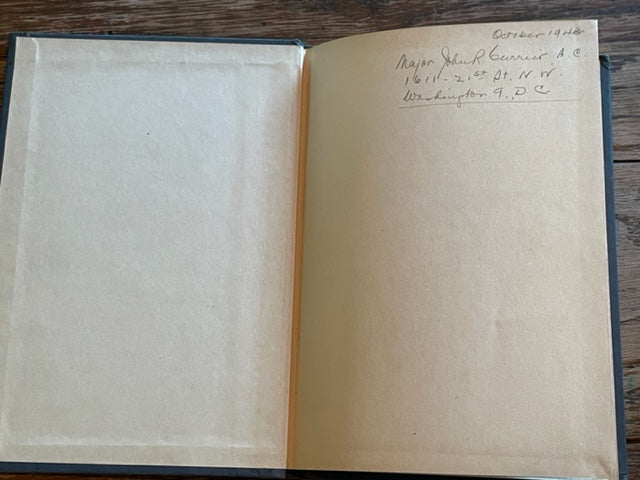 October 194
Major John R Currie, A. C.
1611 - 21st St. N. W.
Washington 9, D C